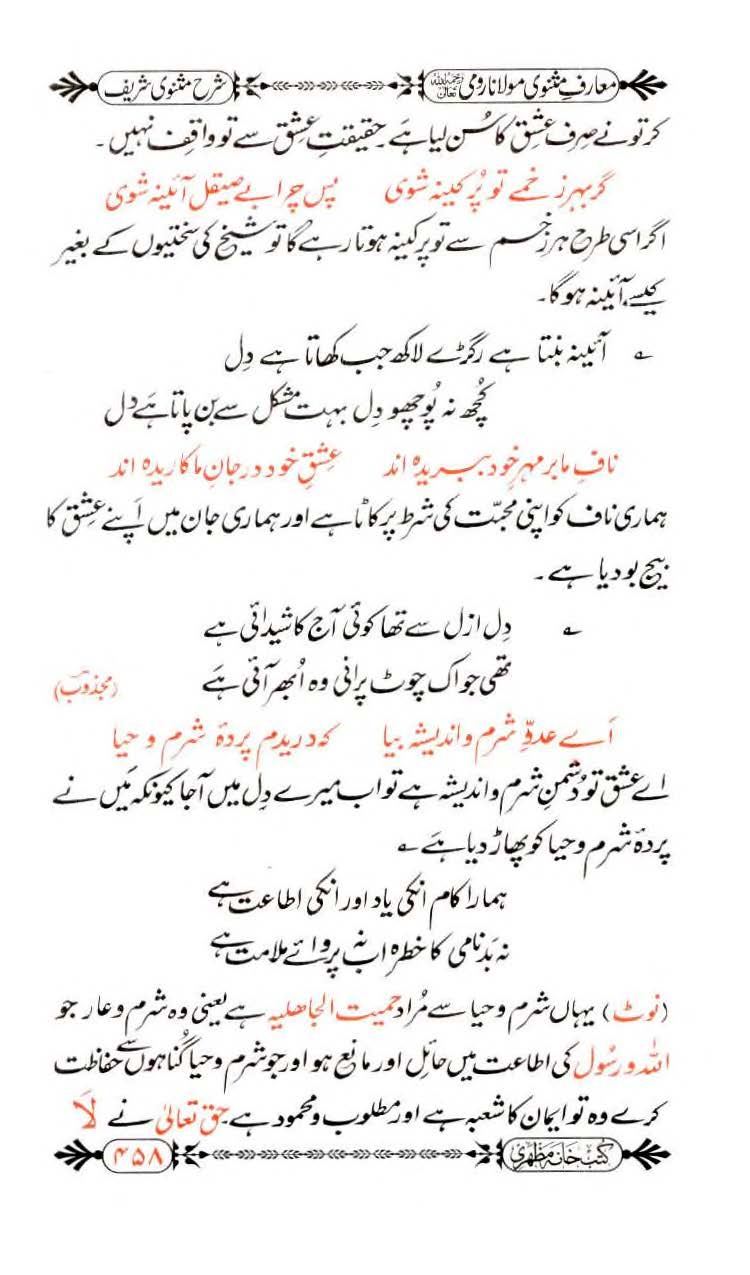 معارفِ مثنوی مولانا رومی رحمہ اللہ تعالیٰ شرح مثنوی شریف
کر تو نے صرف عشق کا سُن لیا ہے۔ حقیقتِ عشق سے تو واقف نہیں۔
گر بہر زخمے تو پُر کینہ شوی پس چرا بے صیقل آئینہ شوی
اگر اسی طرح ہر زخم سے تو پر کینہ ہوتا رہے گا تو شیخ کی سختیوں کے بغیر
کیسے آئینہ ہو گا۔
؎ آئینہ بنتا ہے رگڑے لاکھ جب کھاتا ہے دِل
کُچھ نہ پُوچھو دِل بہت مشکل سے بن پاتا ہَے دل
نافِ ما بر مہرِ خود ببریدہ اند عِشقِ خود در جانِ ما کاریدہ اند
ہماری ناف کو اپنی محبّت کی شرط پر کاٹا ہے اور ہماری جان میں اَپنے عِشق کا
بیج بو دیا ہے۔
؎ دِل ازل سے تھا کوئی آج کا شیدائی ہے
تھی جو اک چوٹ پرانی وہ اُبھر آئی ہَے (مجذوبؒ)
اَے عدوِّ شرم و اندیشہ بیا کہ دریدم پردۂ شرم و حیا
اے عشق تو دُشمنِ شرم و اندیشہ ہے تو اب میرے دِل میں آجا کیونکہ مَیں نے
پردۂ شرم و حیا کو پھاڑ دیا ہَے ؎
ہمارا کام انکی یاد اور انکی اطاعت ہے
نہ بَدنامی کا خطرہ اب نہ پروائے ملامت ہے
(نوٹ) یہاں شرم و حیا سے مُراد حمیت الجاھلیہ ہے یعنی وہ شرم و عار جو
اللہ و رسُول کی اطاعت میں حائل اور مانع ہو اور جو شرم و حیا گُناہوں سے حفاظت
کرے وہ تو ایمان کا شعبہ ہے اور مطلوب و محمود ہے۔ حق تعالیٰ نے لَا
کُتب خانہ مظہری ۴۵۸